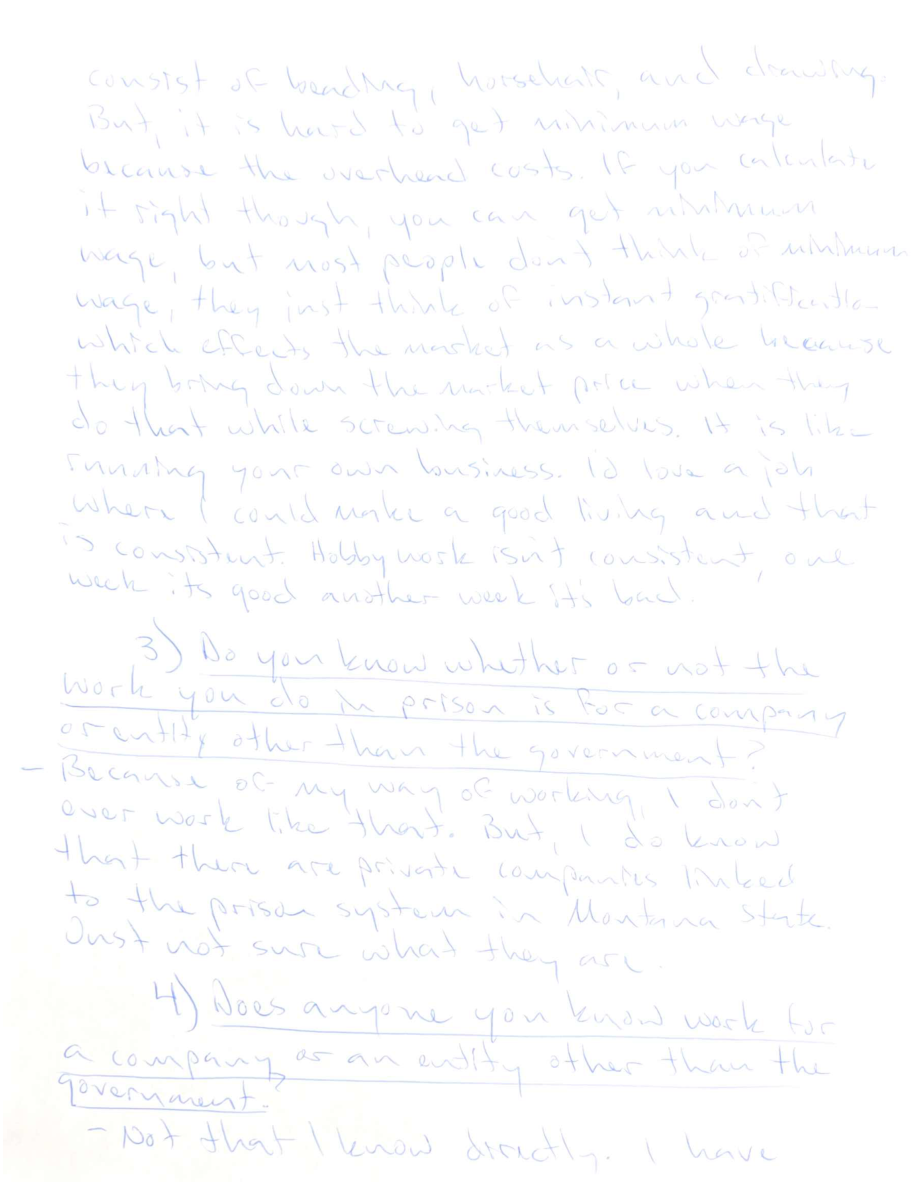 consist of beading, horsehair, and drawing.
But, it is hard to get minimum wage
because the overhead costs. If you calculate
it right though, you can get minimum
wage, but most people don't think of minimum
wage, they just think of instant gratificatio
which effects the market as a whole because
they bring down the market price when they
do that while screwing themselves. It is like
running your own business. I'd love a job
where I could make a good living and that
is consistent. Hobby work isn't consistent, one
week its good another week it's bad.
3) Do you know whether or not the
work you do in prison is for a company
or entity other than the government?
- Because of my way of working, I don't
ever work like that. But, I do know
that there are private companies linked
to the prison system in Montana State.
Just not sure what they are.
4) Does anyone you know work for
a company or an entity other than the
government.
- Not that I know directly. I have